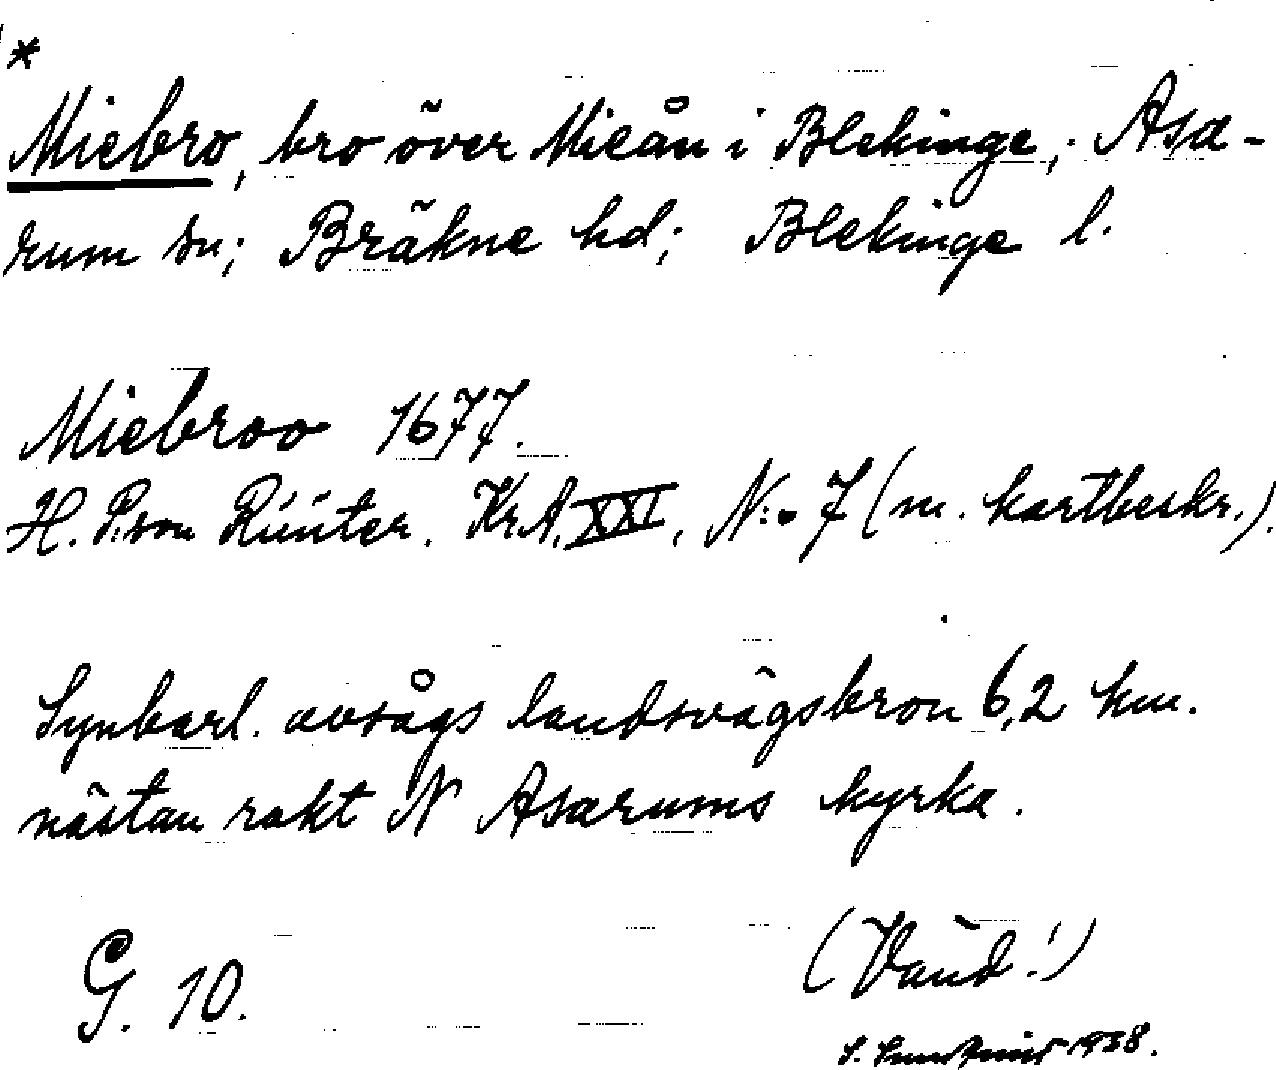 *
Miebro, bro över Mieån i Blekinge,; Asa-
rum sn; Bräkne hd; Blekinge l.
Miebroo 1677.
H. P:son Rüüter. Kr.A. XXI, N:o 7 (m. kartbeskr.).
Synbarl. avsågs landsvägsbron 6,2 km.
nästan rakt N Asarums kyrka.
G. 10.
(Vänd!)
S. 1938.